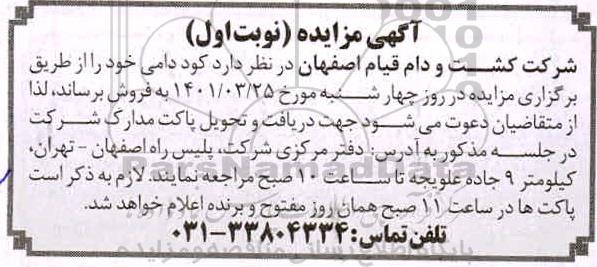 آگهی مزایده (نوبت اول)
شرکت کشت و دام قیام اصفهان در نظر دارد کود دامی خود را از طریق
برگزاری مزایده در روز چهار شنبه مورخ ۱۴۰۱/۰۳/۲۵ به فروش برساند، لذا
از متقاضیان دعوت می شود جهت دریافت و تحویل پاکت مدارک شرکت
در جلسه مذکور به آدرس: دفتر مرکزی شرکت، پلیس راه اصفهان - تهران،
کیلومتر ۹ جاده علویجه تا ساعت ۱۰ صبح مراجعه نمایند. لازم به ذکر است
پاکت ها در ساعت ۱۱ صبح همان روز مفتوح و برنده اعلام خواهد شد.
تلفن تماس: ۳۳۸۰۴۳۳۴-۰۳۱
ParsNamadData